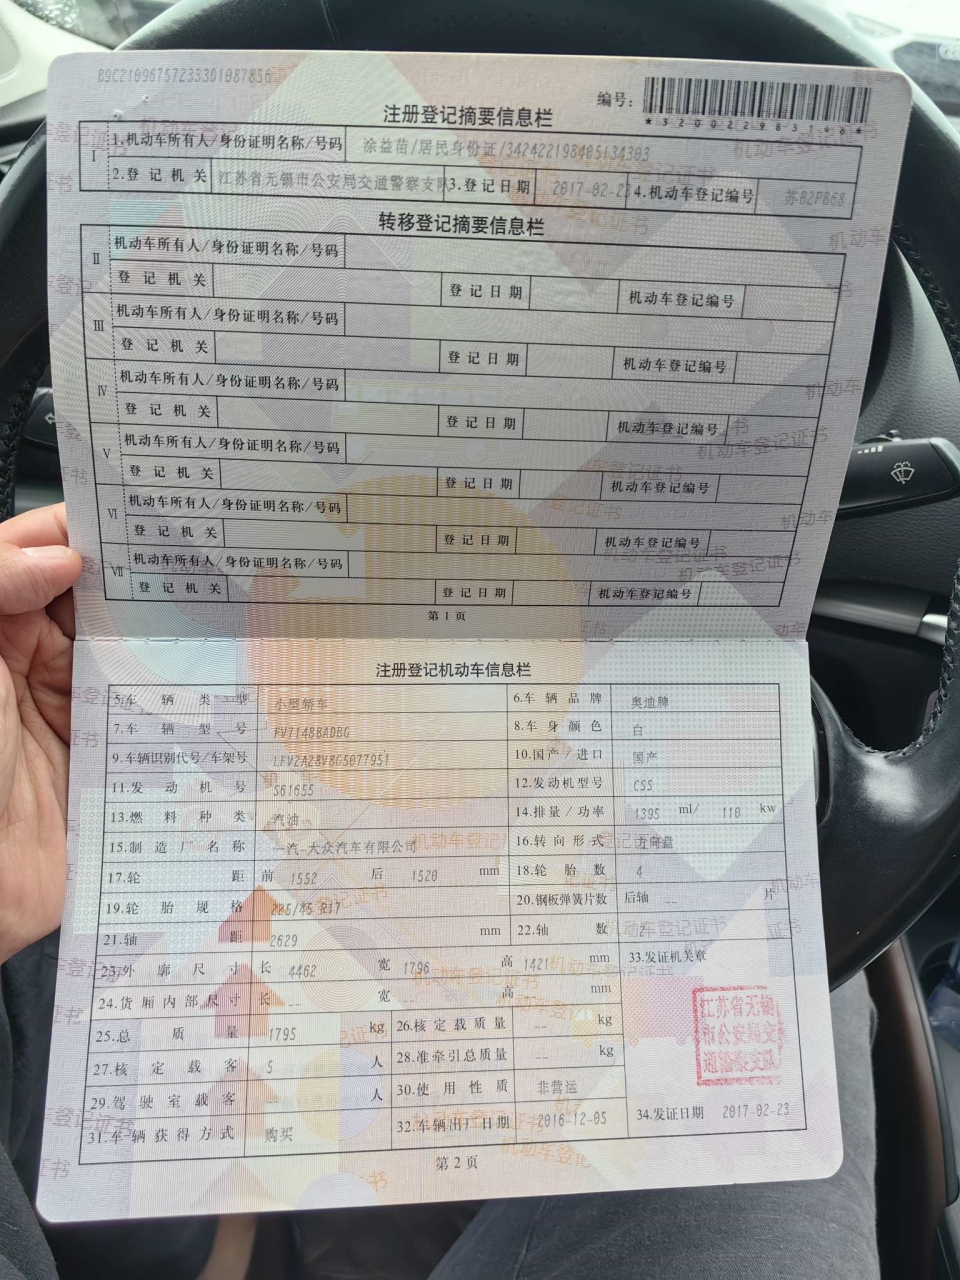 B9C210967572333D1087856
编号：
*320022983146*
注册登记摘要信息栏
I 1.机动车所有人/身份证明名称/号码 涂益苗/居民身份证/342422198405134303
2.登记机关 江苏省无锡市公安局交通警察支队 3.登记日期 2017-02-23 4.机动车登记编号 苏B2P868
转移登记摘要信息栏
II 机动车所有人/身份证明名称/号码
登记机关 登记日期 机动车登记编号
III 机动车所有人/身份证明名称/号码
登记机关 登记日期 机动车登记编号
IV 机动车所有人/身份证明名称/号码
登记机关 登记日期 机动车登记编号
V 机动车所有人/身份证明名称/号码
登记机关 登记日期 机动车登记编号
VI 机动车所有人/身份证明名称/号码
登记机关 登记日期 机动车登记编号
VII 机动车所有人/身份证明名称/号码
登记机关 登记日期 机动车登记编号
第1页
注册登记机动车信息栏
5.车辆类型 小型轿车 6.车辆品牌 奥迪牌
7.车辆型号 FV7148BADBG 8.车身颜色 白
9.车辆识别代号/车架号 LFV2A28V8G5077951 10.国产/进口 国产
11.发动机号 S61655 12.发动机型号 CSS
13.燃料种类 汽油 14.排量/功率 1395 ml/ 110 kw
15.制造厂名称 一汽-大众汽车有限公司 16.转向形式 方向盘
17.轮距 前 1552 后 1520 mm 18.轮胎数 4
19.轮胎规格 225/45 R17 20.钢板弹簧片数 后轴 -- 片
21.轴距 2629 mm 22.轴数 2
23.外廓尺寸 长 4462 宽 1796 高 1421 mm 33.发证机关章
24.货厢内部尺寸 长 -- 宽 -- 高 mm
江苏省无锡
市公安局交
通警察支队
25.总质量 1795 kg 26.核定载质量 -- kg
27.核定载客 5 人 28.准牵引总质量 -- kg
29.驾驶室载客 人 30.使用性质 非营运
31.车辆获得方式 购买 32.车辆出厂日期 2016-12-05 34.发证日期 2017-02-23
第2页